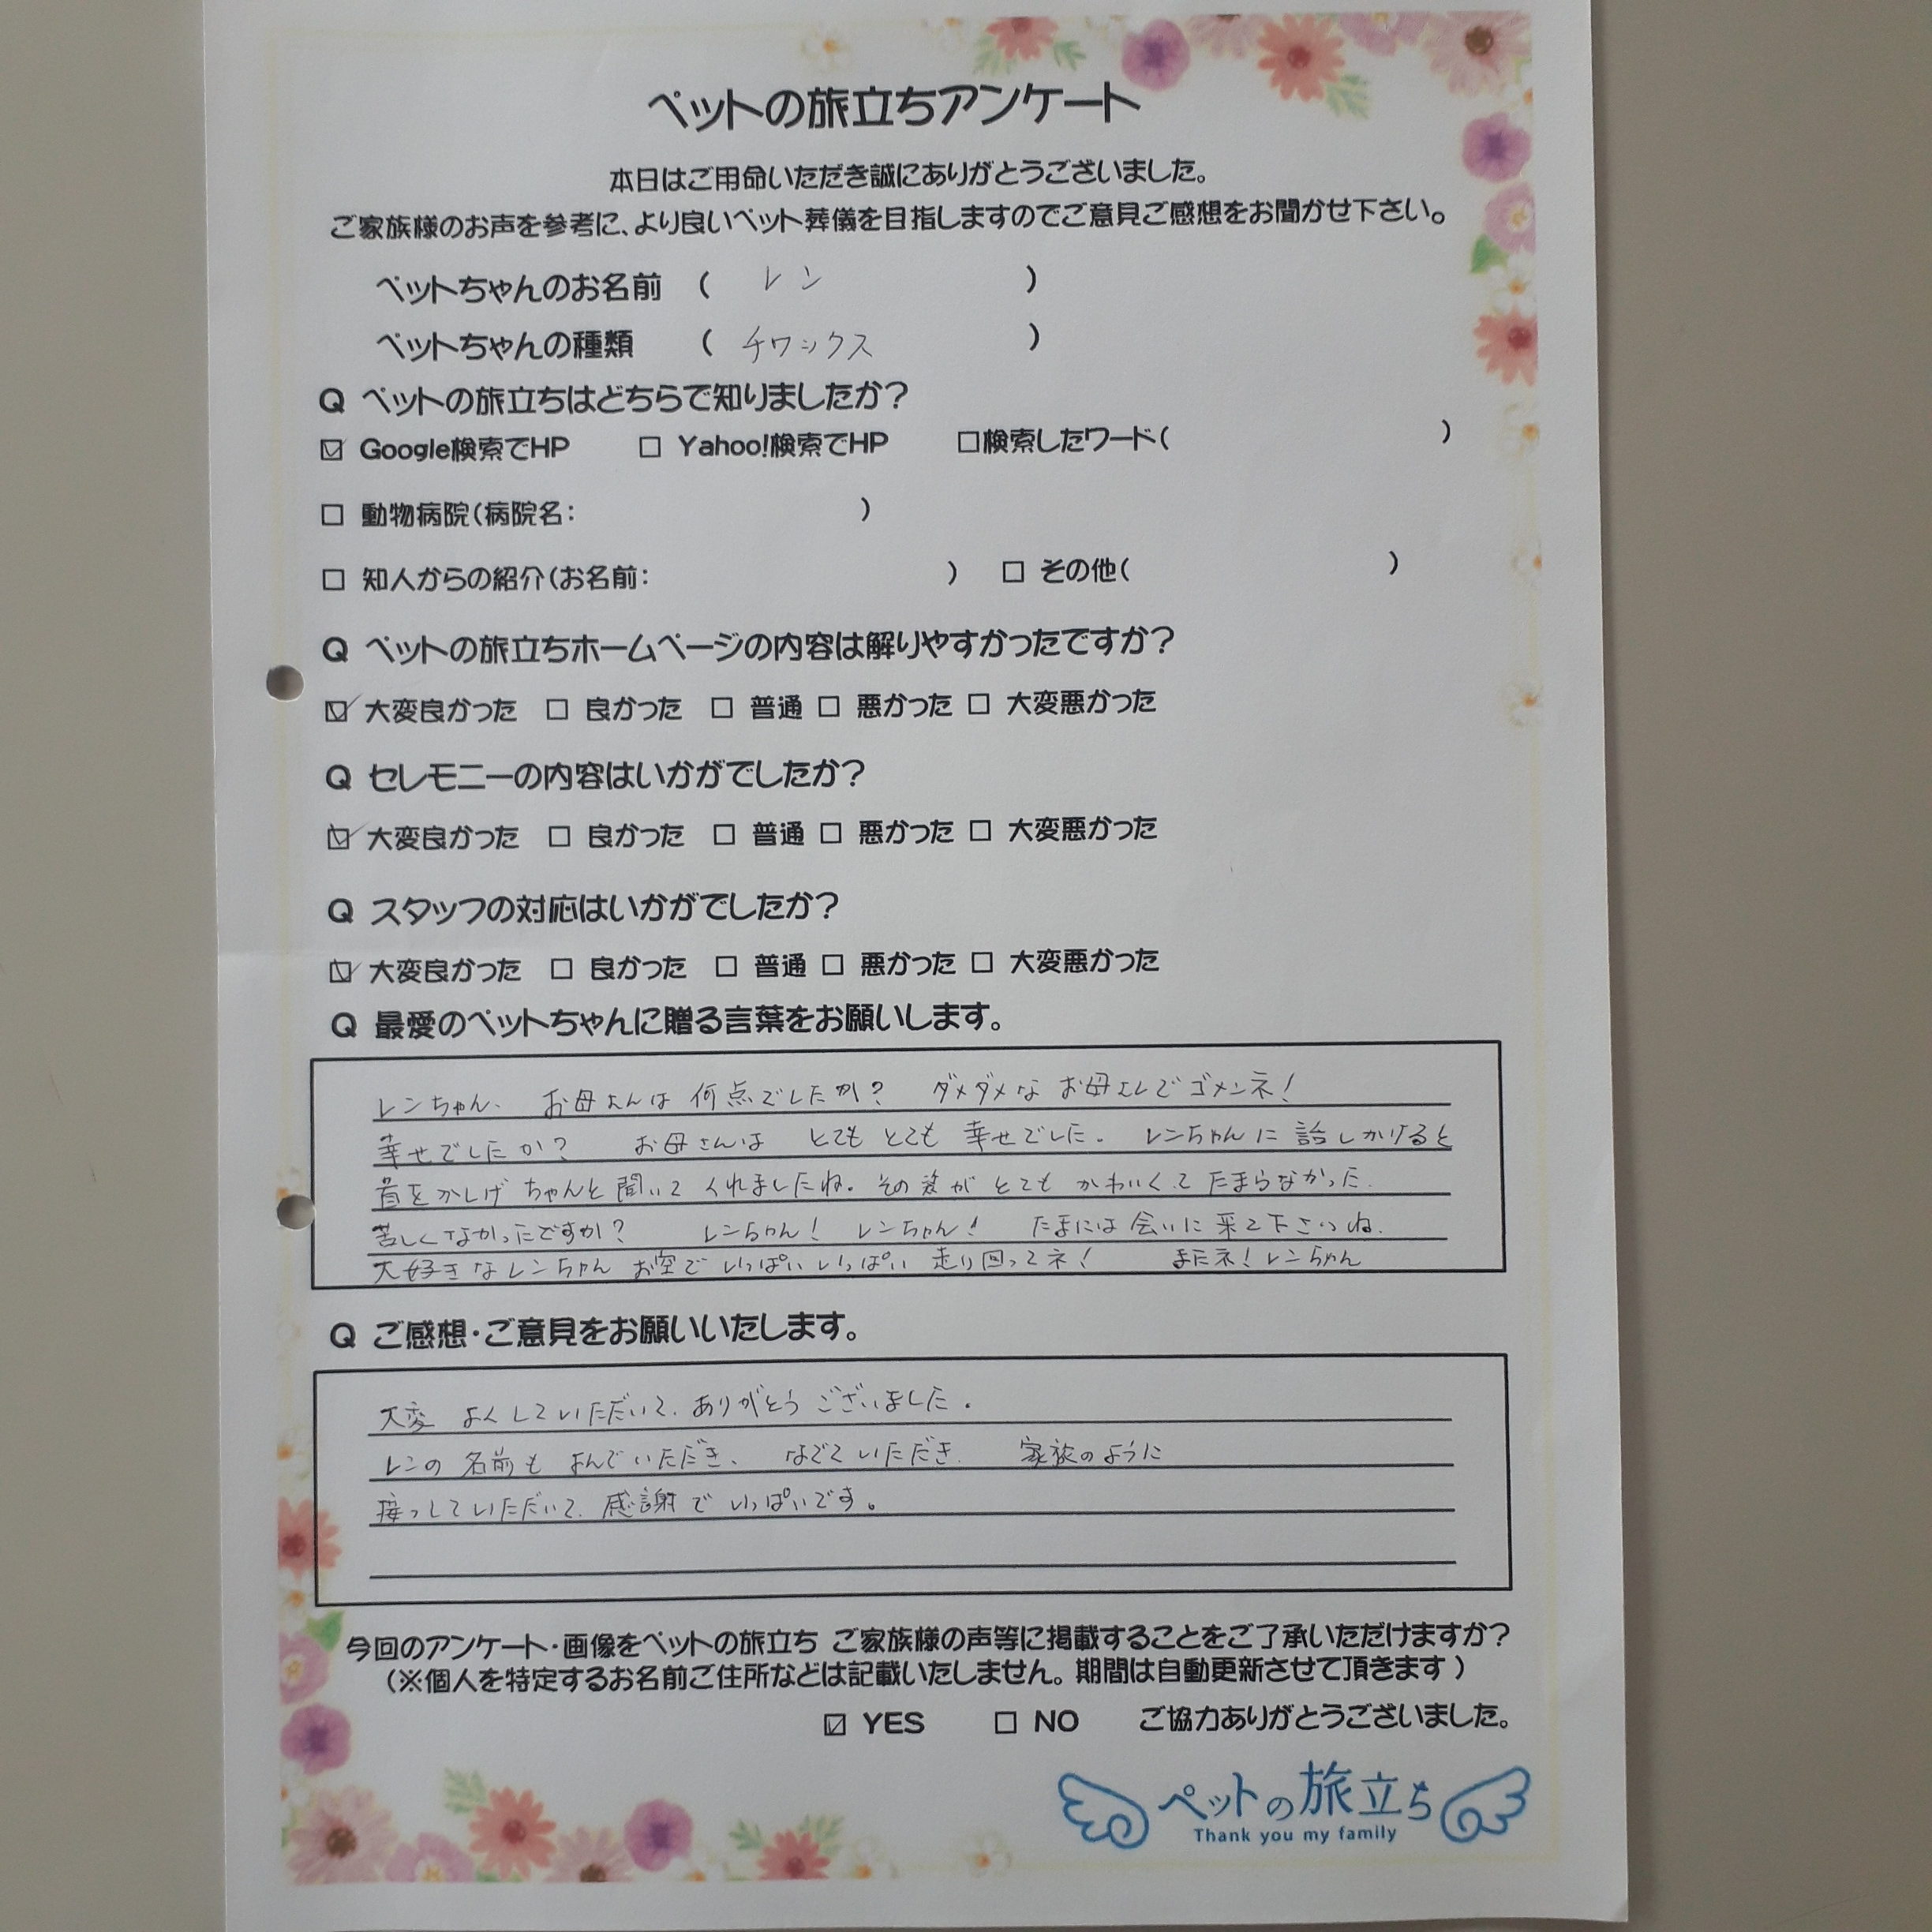 ペットの旅立ちアンケート
本日はご用命いただき誠にありがとうございました。
ご家族様のお声を参考に、より良いペット葬儀を目指しますのでご意見ご感想をお聞かせ下さい。
ペットちゃんのお名前 ( レン )
ペットちゃんの種類 ( チワックス )
Q ペットの旅立ちはどちらで知りましたか？
☑ Google検索でHP □ Yahoo!検索でHP □検索したワード( )
□ 動物病院(病院名: )
□ 知人からの紹介(お名前: ) □ その他( )
Q ペットの旅立ちホームページの内容は解りやすかったですか？
☑ 大変良かった □ 良かった □ 普通 □ 悪かった □ 大変悪かった
Q セレモニーの内容はいかがでしたか？
☑ 大変良かった □ 良かった □ 普通 □ 悪かった □ 大変悪かった
Q スタッフの対応はいかがでしたか？
☑ 大変良かった □ 良かった □ 普通 □ 悪かった □ 大変悪かった
Q 最愛のペットちゃんに贈る言葉をお願いします。
レンちゃん、お母さんは何点でしたか？ ダメダメなお母さんでゴメンネ！
幸せでしたか？ お母さんは とても とても 幸せでした。レンちゃんに話しかけると
首をかしげ ちゃんと聞いてくれましたね。その姿が とても かわいくてたまらなかった。
苦しくなかったですか？ レンちゃん！ レンちゃん！ たまには会いに来て下さいね。
大好きなレンちゃん お空で いっぱいいっぱい 走り回ってネ！ またネ！レンちゃん
Q ご感想・ご意見をお願いいたします。
大変 よくしていただいて、ありがとうございました。
レンの名前も よんでいただき、なでていただき、家族のように
接っしていただいて、感謝で いっぱいです。
今回のアンケート・画像をペットの旅立ち ご家族様の声等に掲載することをご了承いただけますか？
(※個人を特定するお名前ご住所などは記載いたしません。期間は自動更新させて頂きます)
☑ YES □ NO ご協力ありがとうございました。
ペットの旅立ち
Thank you my family